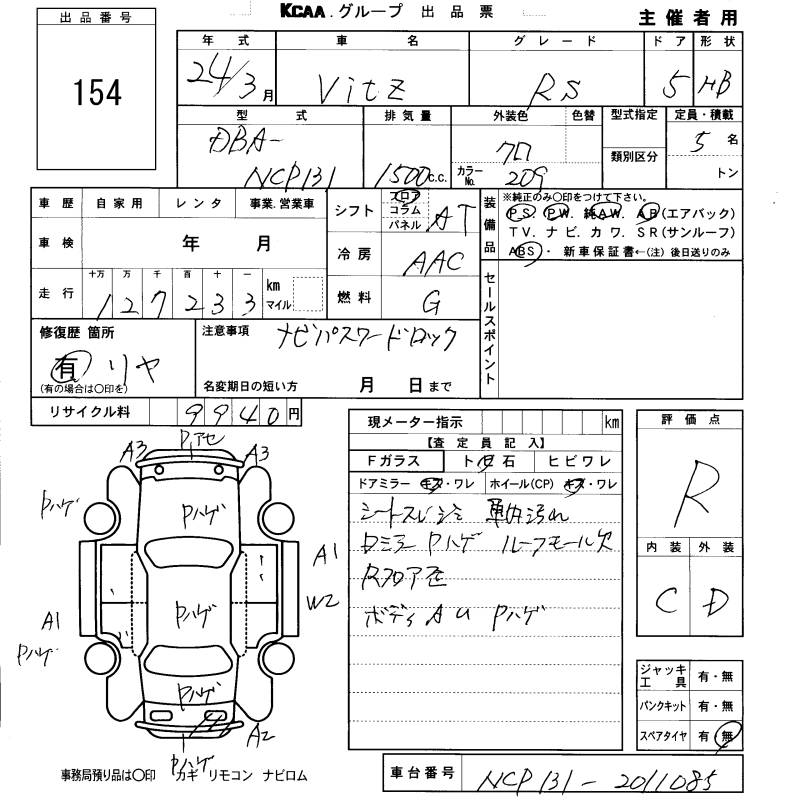 KCAA.グループ 出品票
主催者用
出品番号
154
年式 車名 グレード ドア 形状
24/3月 Vitz RS 5 HB
型式 排気量 外装色 色替 型式指定 定員・積載
DBA-
NCP131 1500c.c. クロ カラーNo. 209 類別区分 5名
トン
車歴 自家用 レンタ 事業.営業車
シフト フロア コラム パネル AT
装備品
※純正のみ〇印をつけて下さい。
P.S. P.W. 純A.W. A.B(エアバック)
T.V. ナビ. カワ. S.R(サンルーフ)
ABS・ 新車保証書←(注) 後日送りのみ
車検 年 月
冷房 AAC
走行 十万 万 千 百 十 一
127233 km マイル
燃料 G
セールスポイント
修復歴 箇所
有 リヤ
(有の場合は〇印を)
注意事項 ナビパスワードロック
名変期日の短い方 月 日まで
リサイクル料 9940円
現メーター指示 km
【査定員記入】
Fガラス ト 石 ヒビワレ
ドアミラー キズ・ワレ ホイール(CP) キズ・ワレ
シートスレ シミ 車内汚れ
Dミラー Pハゲ ルーフモール欠
Rフロア歪
ボディ A U Pハゲ
評価点
R
内装 外装
C D
ジャッキ工具 有・無
パンクキット 有・無
スペアタイヤ 有・無
Pアセ
A3 A3
Pハゲ Pハゲ
A1
W2
A1 Pハゲ
Pハゲ
Pハゲ
A2
Pハゲ
事務局預り品は〇印 カギ リモコン ナビロム
車台番号 NCP131-2011085